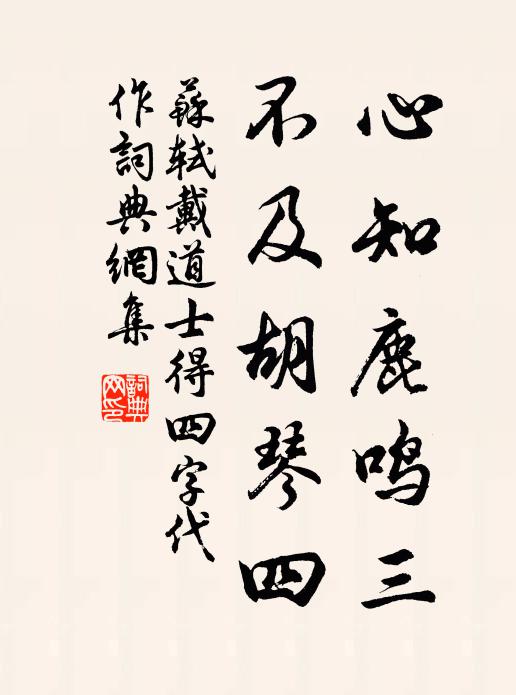 心知鹿鸣三
不及胡琴四
蘇軾戴道士得四字代
作詞典網集
詞典
网印